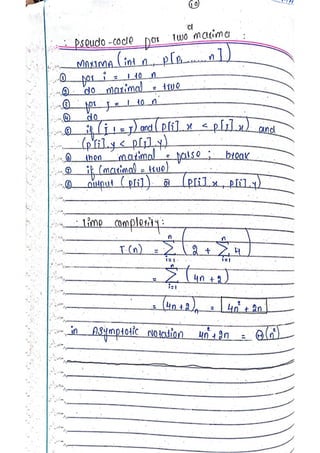 : Pseudo-code for two maxima :
MAXIMA (int n, P[1......n])
① for i = 1 to n
② do maximal = true
③ for j = 1 to n
④ do
⑤ if (i != j) and (P[i].x < P[j].x) and
(P[i].y < P[j].y)
⑥ then maximal = false ; break
⑦ if (maximal = true)
⑧ output (P[i]) or (P[i].x, P[i].y)
: Time complexity :
T(n) = Σⁿᵢ₌₁ (2 + Σⁿⱼ₌₁ 4)
= Σⁿᵢ₌₁ (4n + 2)
= (4n+2)n = 4n² + 2n
in Asymptotic Notation 4n²+2n = Θ(n²)